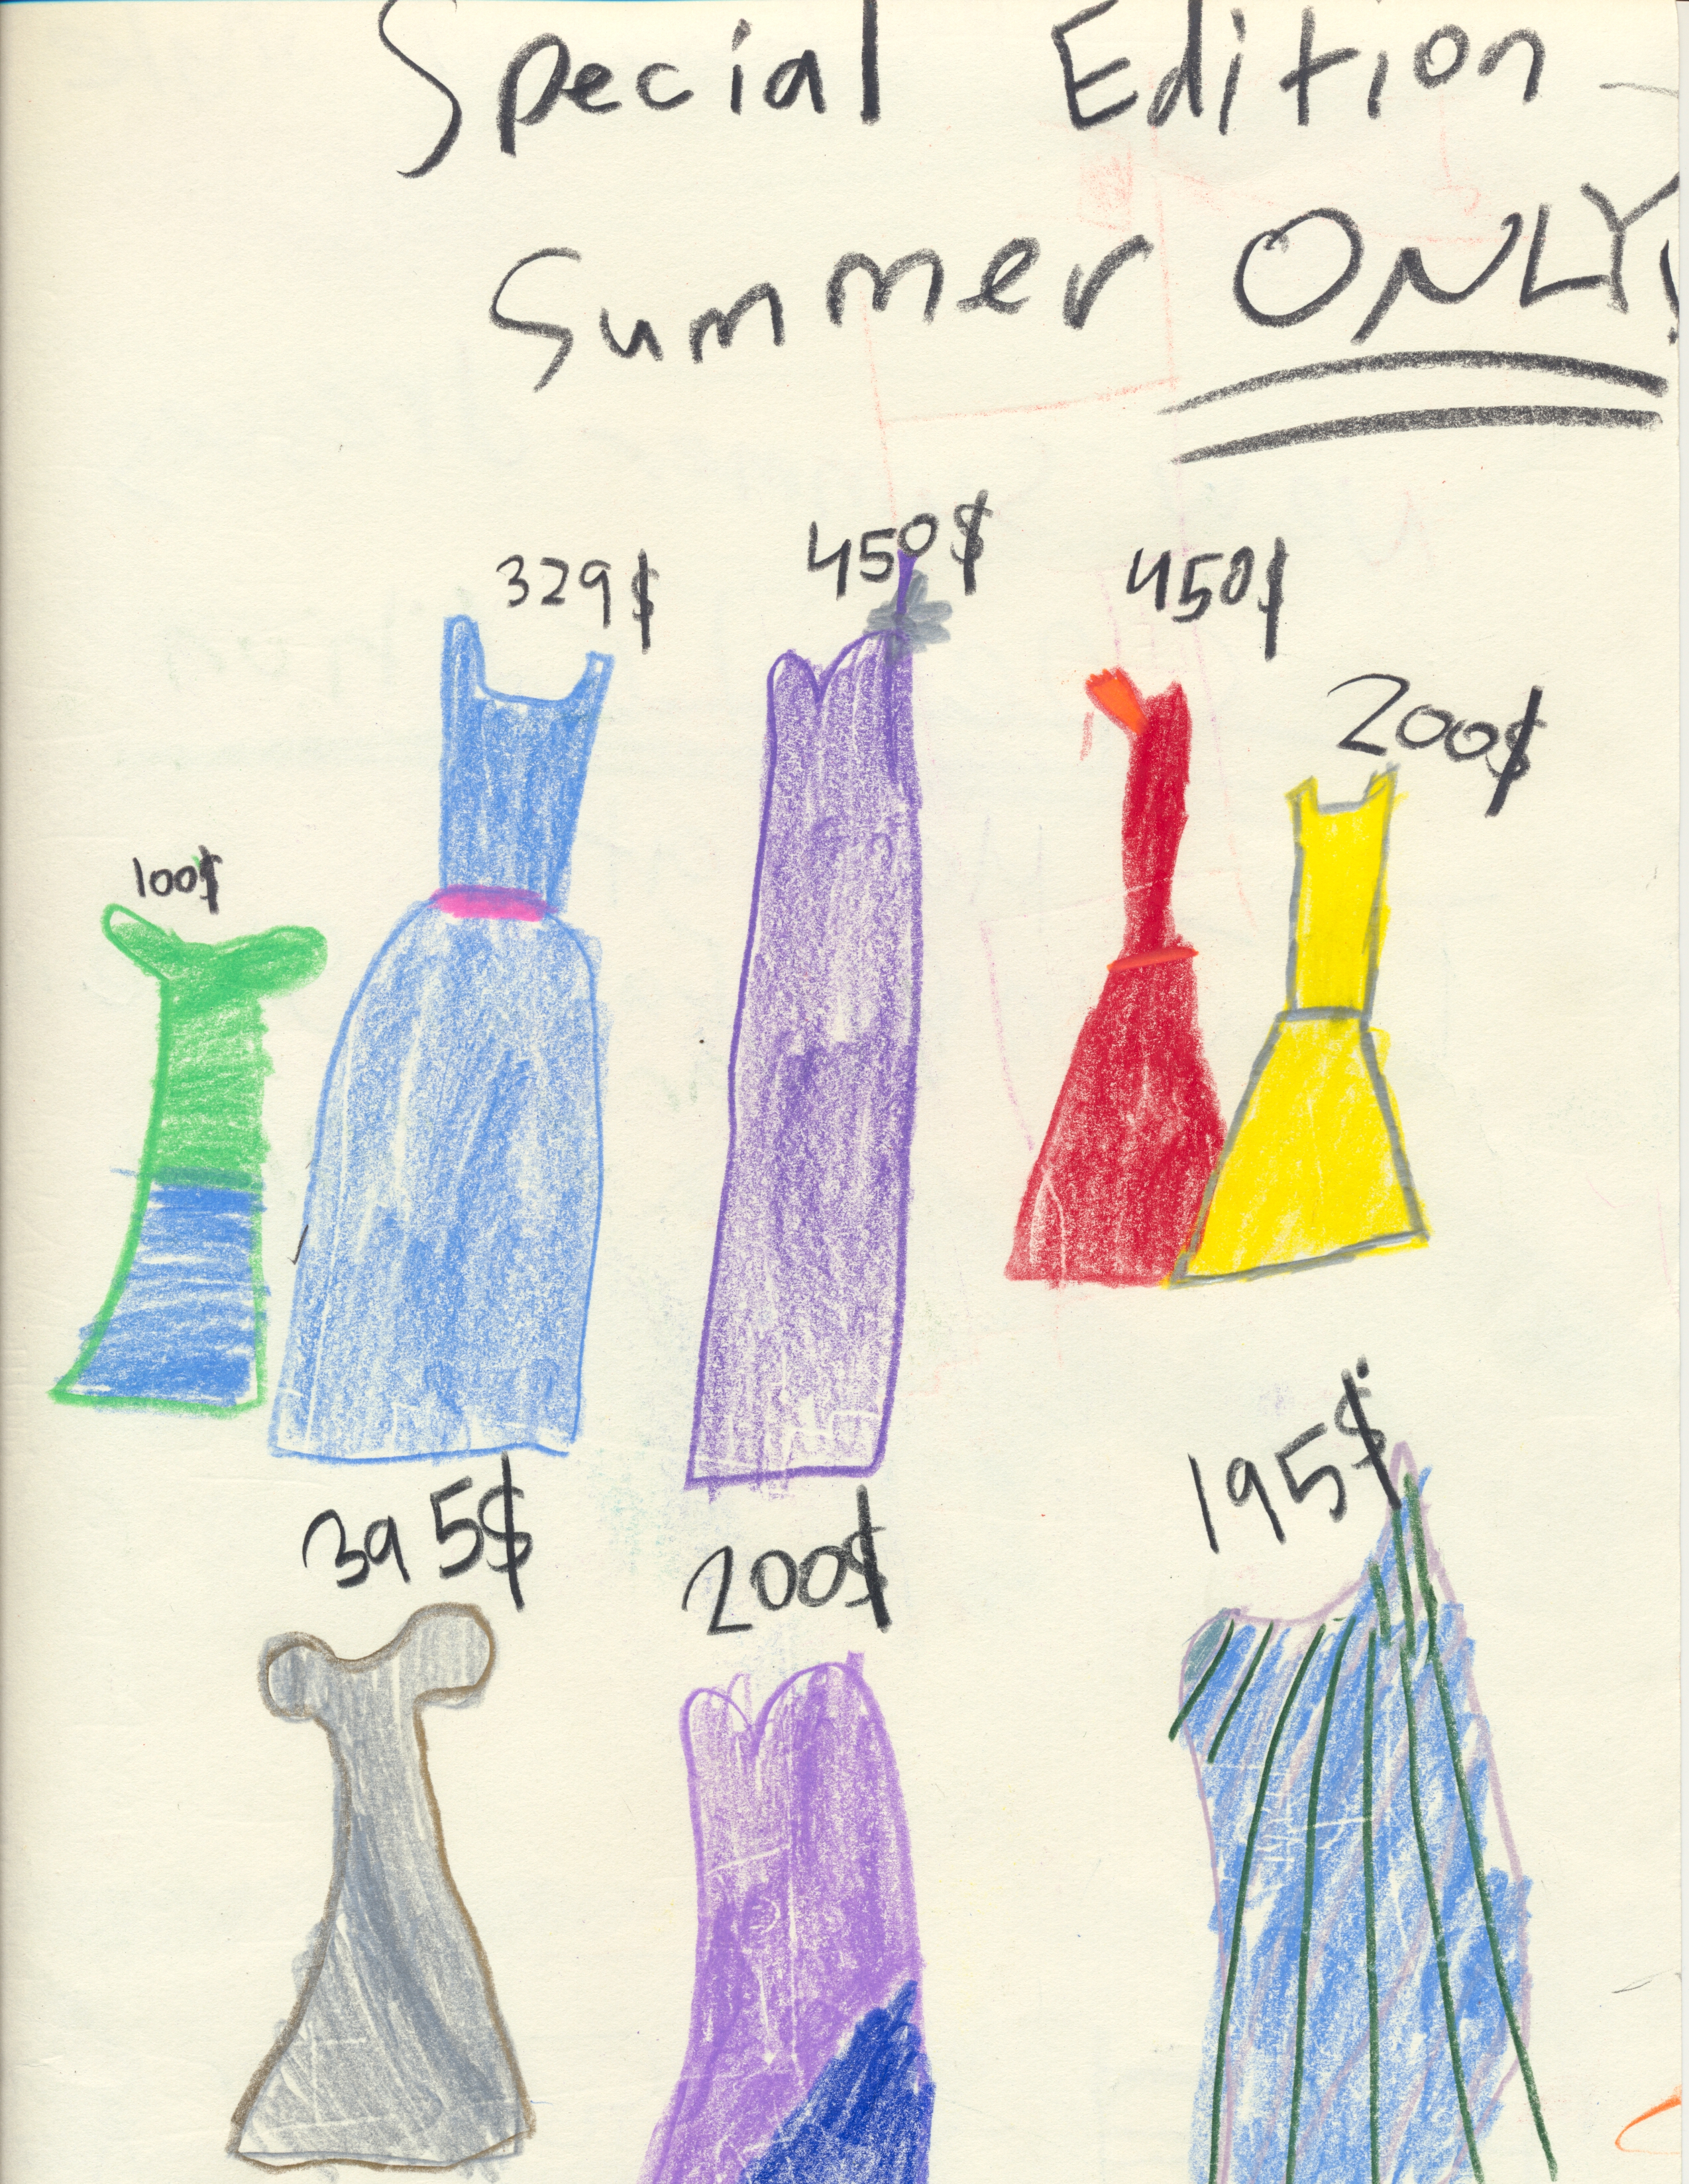 Special Edition
Summer ONLY!
329$
450$
450$
200$
100$
395$
200$
195$